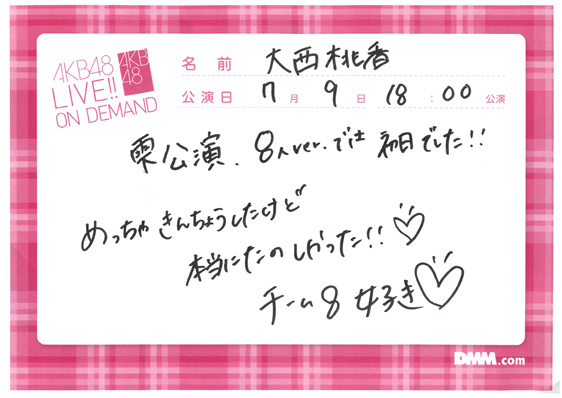 AKB48
LIVE!!
ON DEMAND
AKB
48
名前 大西桃香
公演日 7月9日 18:00公演
雫公演、8人ver.では初日でした!!
めっちゃきんちょうしたけど
本当にたのしかった!!♡
チーム8 好き♡
DMM.com